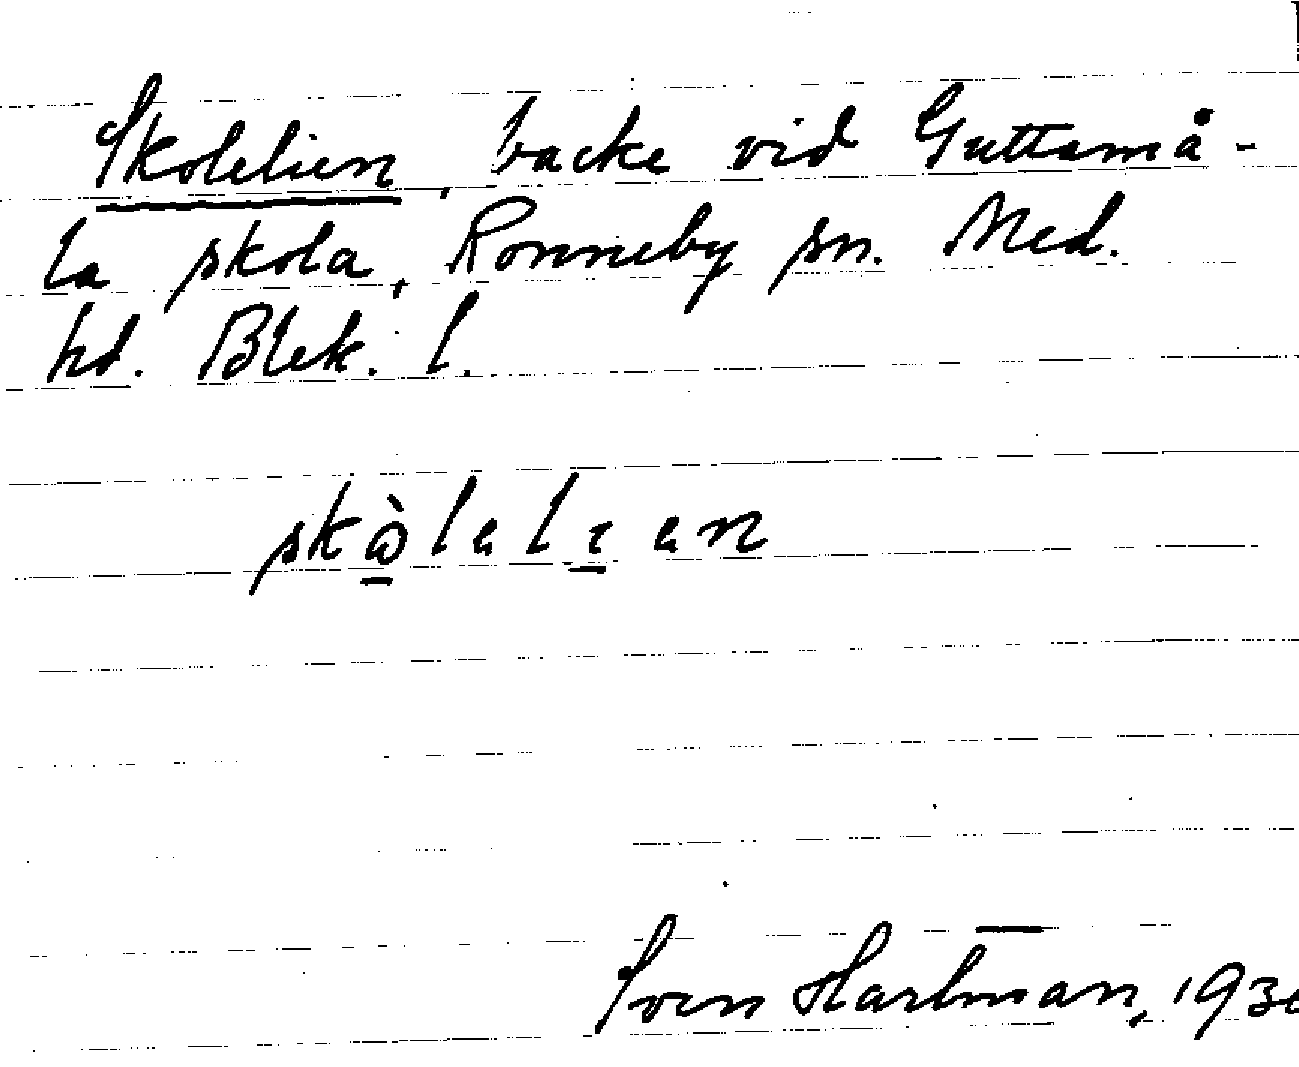 Skolelien, backe vid Guttamå-
la skola, Ronneby sn. Med.
hd. Blek. l.
Sven Hartman, 193